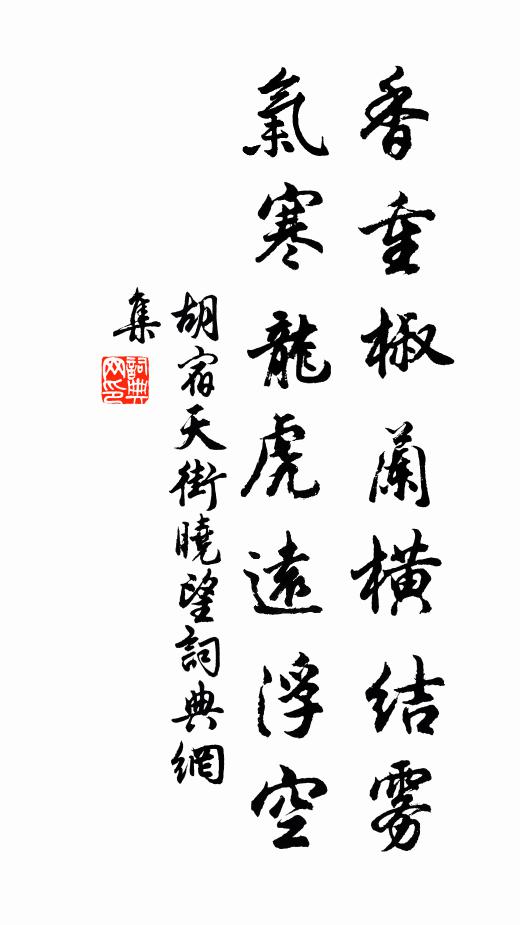 香重椒蘭橫結霧
氣寒龍虎遠浮空
胡宿天街曉望詞典網
集
詞典
网印